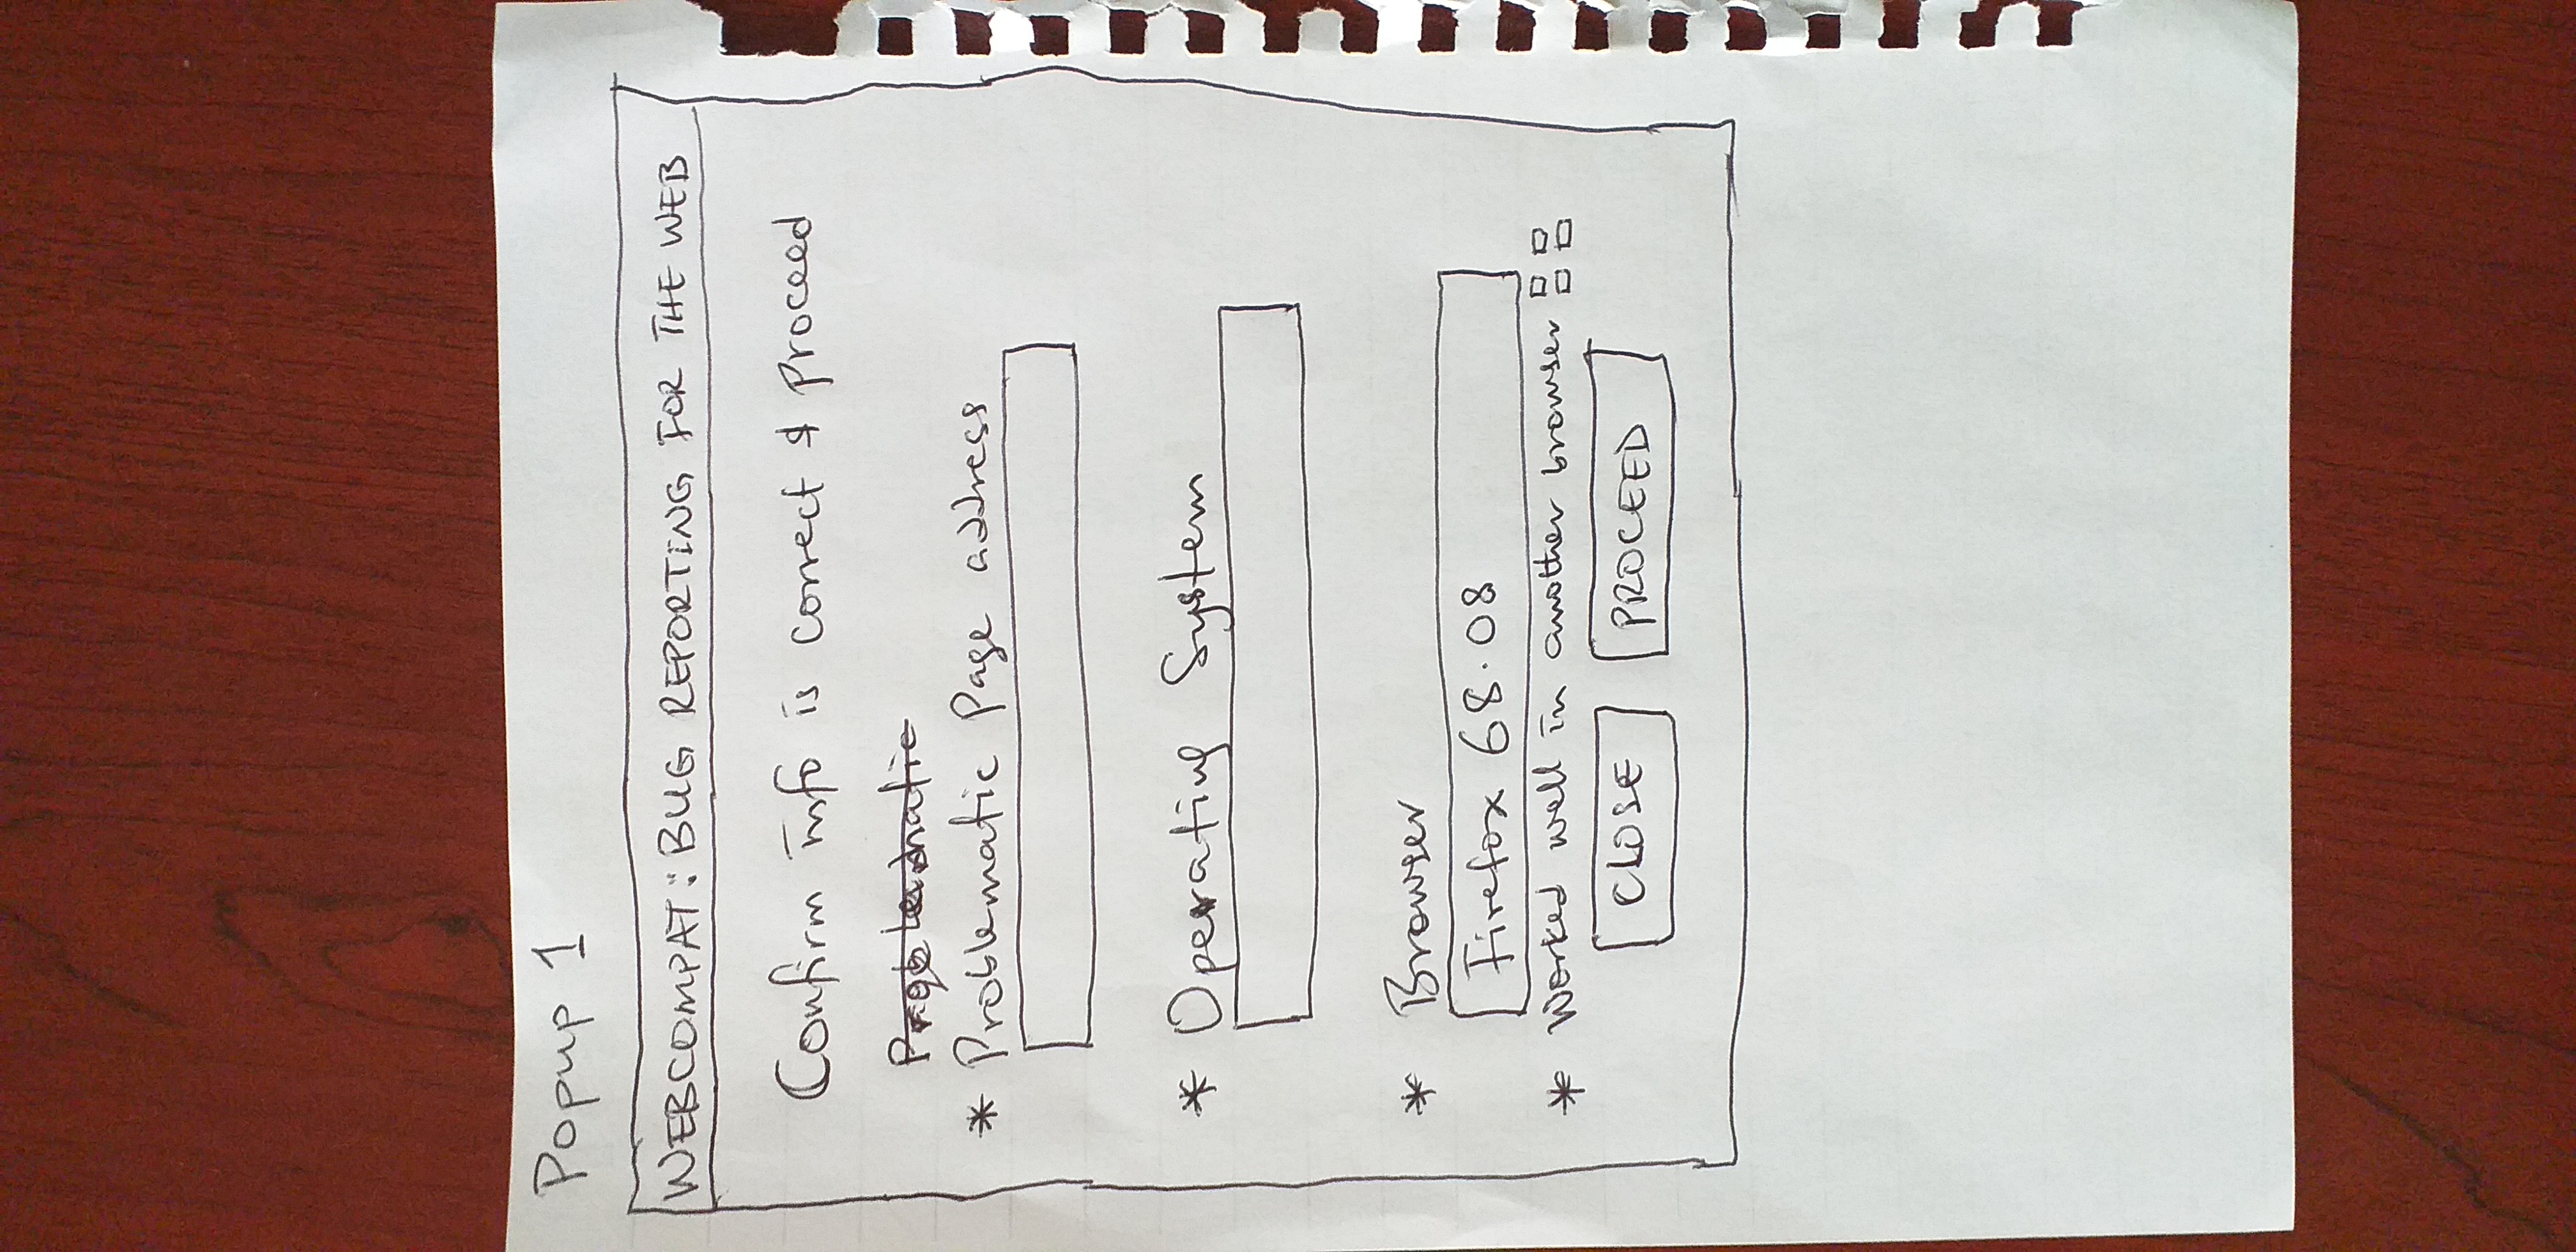 Popup 1
WEBCOMPAT: BUG REPORTING FOR THE WEB
Confirm info is correct & proceed
* Problematic Page address
* Operating System
* Browser
Firefox 68.08
* Worked well in another browser
CLOSE PROCEED